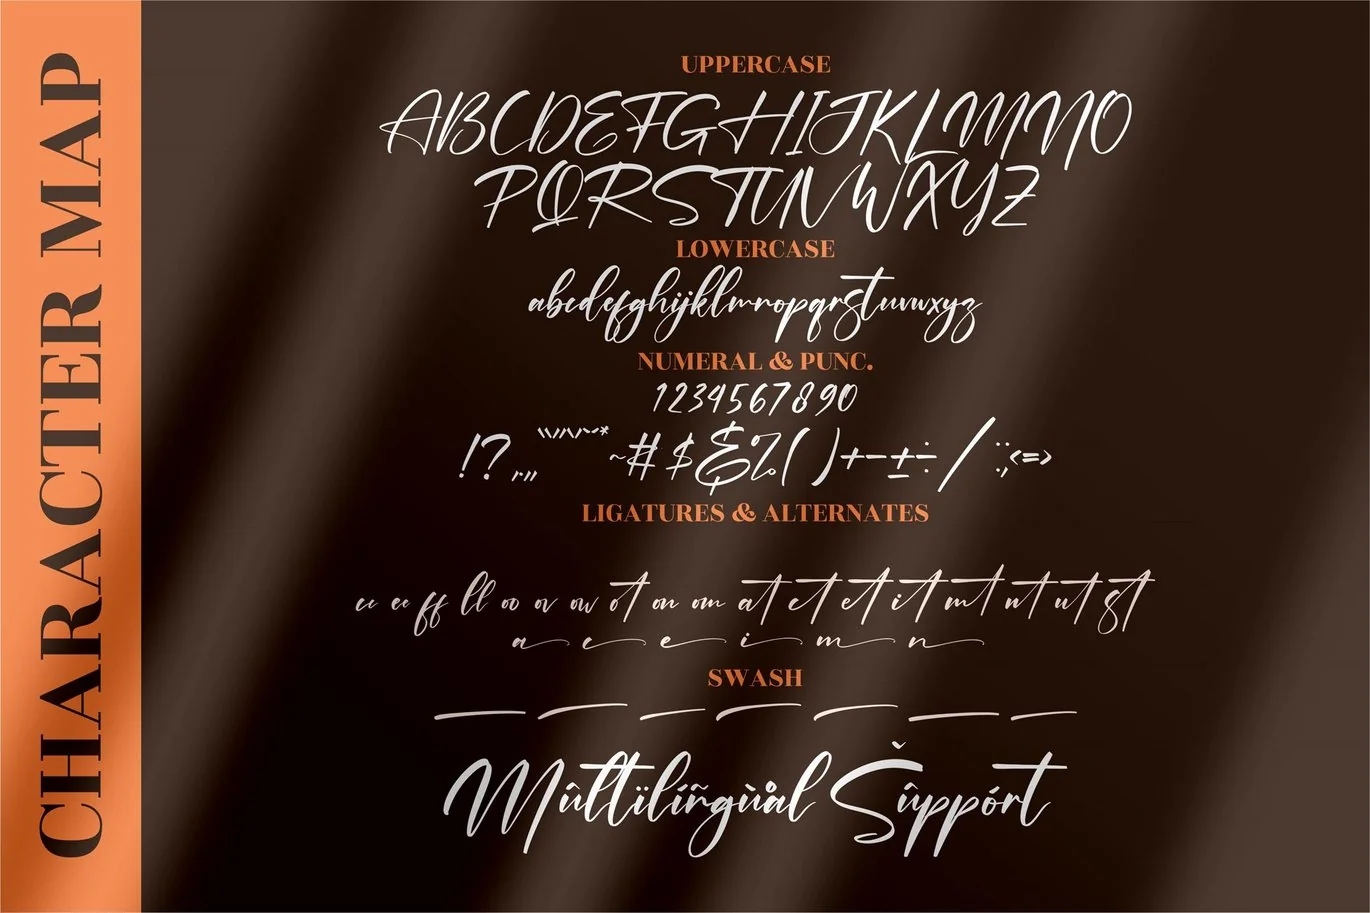 CHARACTER MAP
UPPERCASE
ABCDEFGHIJKLMNO
PQRSTUVWXYZ
LOWERCASE
abcdefghijklmnopqrstuvwxyz
NUMERAL & PUNC.
1234567890
!? ~#$&%()+-±÷/:;<=>
LIGATURES & ALTERNATES
cc ee ff ll oo ov ow ot on om at ct et it mt nt ut st
a c e i m n
SWASH
Mûltïlíñgùål Šûppórt